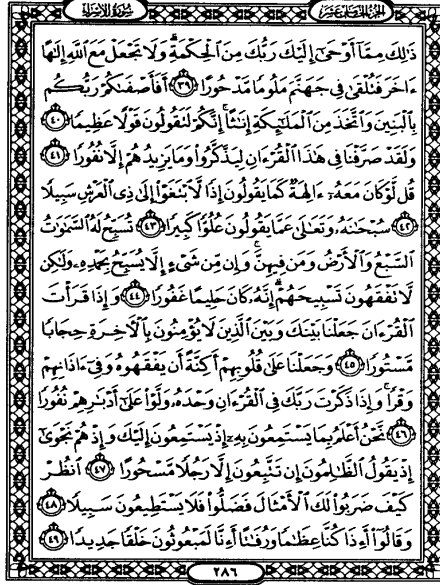 سورة الإسراء
الجزء الخامس عشر
ذَٰلِكَ مِمَّا أَوْحَىٰ إِلَيْكَ رَبُّكَ مِنَ الْحِكْمَةِ ۗ وَلَا تَجْعَلْ مَعَ اللَّهِ إِلَٰهًا
ءَاخَرَ فَتُلْقَىٰ فِي جَهَنَّمَ مَلُومًا مَّدْحُورًا ٣٩ أَفَأَصْفَىٰكُمْ رَبُّكُم
بِالْبَنِينَ وَاتَّخَذَ مِنَ الْمَلَٰئِكَةِ إِنَٰثًا ۚ إِنَّكُمْ لَتَقُولُونَ قَوْلًا عَظِيمًا ٤٠
وَلَقَدْ صَرَّفْنَا فِي هَٰذَا الْقُرْءَانِ لِيَذَّكَّرُوا وَمَا يَزِيدُهُمْ إِلَّا نُفُورًا ٤١
قُل لَّوْ كَانَ مَعَهُۥ ءَالِهَةٌ كَمَا يَقُولُونَ إِذًا لَّابْتَغَوْا إِلَىٰ ذِي الْعَرْشِ سَبِيلًا
٤٢ سُبْحَٰنَهُۥ وَتَعَٰلَىٰ عَمَّا يَقُولُونَ عُلُوًّا كَبِيرًا ٤٣ تُسَبِّحُ لَهُ السَّمَٰوَٰتُ
السَّبْعُ وَالْأَرْضُ وَمَن فِيهِنَّ ۚ وَإِن مِّن شَيْءٍ إِلَّا يُسَبِّحُ بِحَمْدِهِۦ وَلَٰكِن
لَّا تَفْقَهُونَ تَسْبِيحَهُمْ ۗ إِنَّهُۥ كَانَ حَلِيمًا غَفُورًا ٤٤ وَإِذَا قَرَأْتَ
الْقُرْءَانَ جَعَلْنَا بَيْنَكَ وَبَيْنَ الَّذِينَ لَا يُؤْمِنُونَ بِالْءَاخِرَةِ حِجَابًا
مَّسْتُورًا ٤٥ وَجَعَلْنَا عَلَىٰ قُلُوبِهِمْ أَكِنَّةً أَن يَفْقَهُوهُ وَفِي ءَاذَانِهِمْ
وَقْرًا ۚ وَإِذَا ذَكَرْتَ رَبَّكَ فِي الْقُرْءَانِ وَحْدَهُۥ وَلَّوْا عَلَىٰ أَدْبَٰرِهِمْ نُفُورًا
٤٦ نَّحْنُ أَعْلَمُ بِمَا يَسْتَمِعُونَ بِهِۦ إِذْ يَسْتَمِعُونَ إِلَيْكَ وَإِذْ هُمْ نَجْوَىٰ
إِذْ يَقُولُ الظَّٰلِمُونَ إِن تَتَّبِعُونَ إِلَّا رَجُلًا مَّسْحُورًا ٤٧ انظُرْ
كَيْفَ ضَرَبُوا لَكَ الْأَمْثَالَ فَضَلُّوا فَلَا يَسْتَطِيعُونَ سَبِيلًا ٤٨
وَقَالُوا أَءِذَا كُنَّا عِظَٰمًا وَرُفَٰتًا أَءِنَّا لَمَبْعُوثُونَ خَلْقًا جَدِيدًا ٤٩
٢٨٦